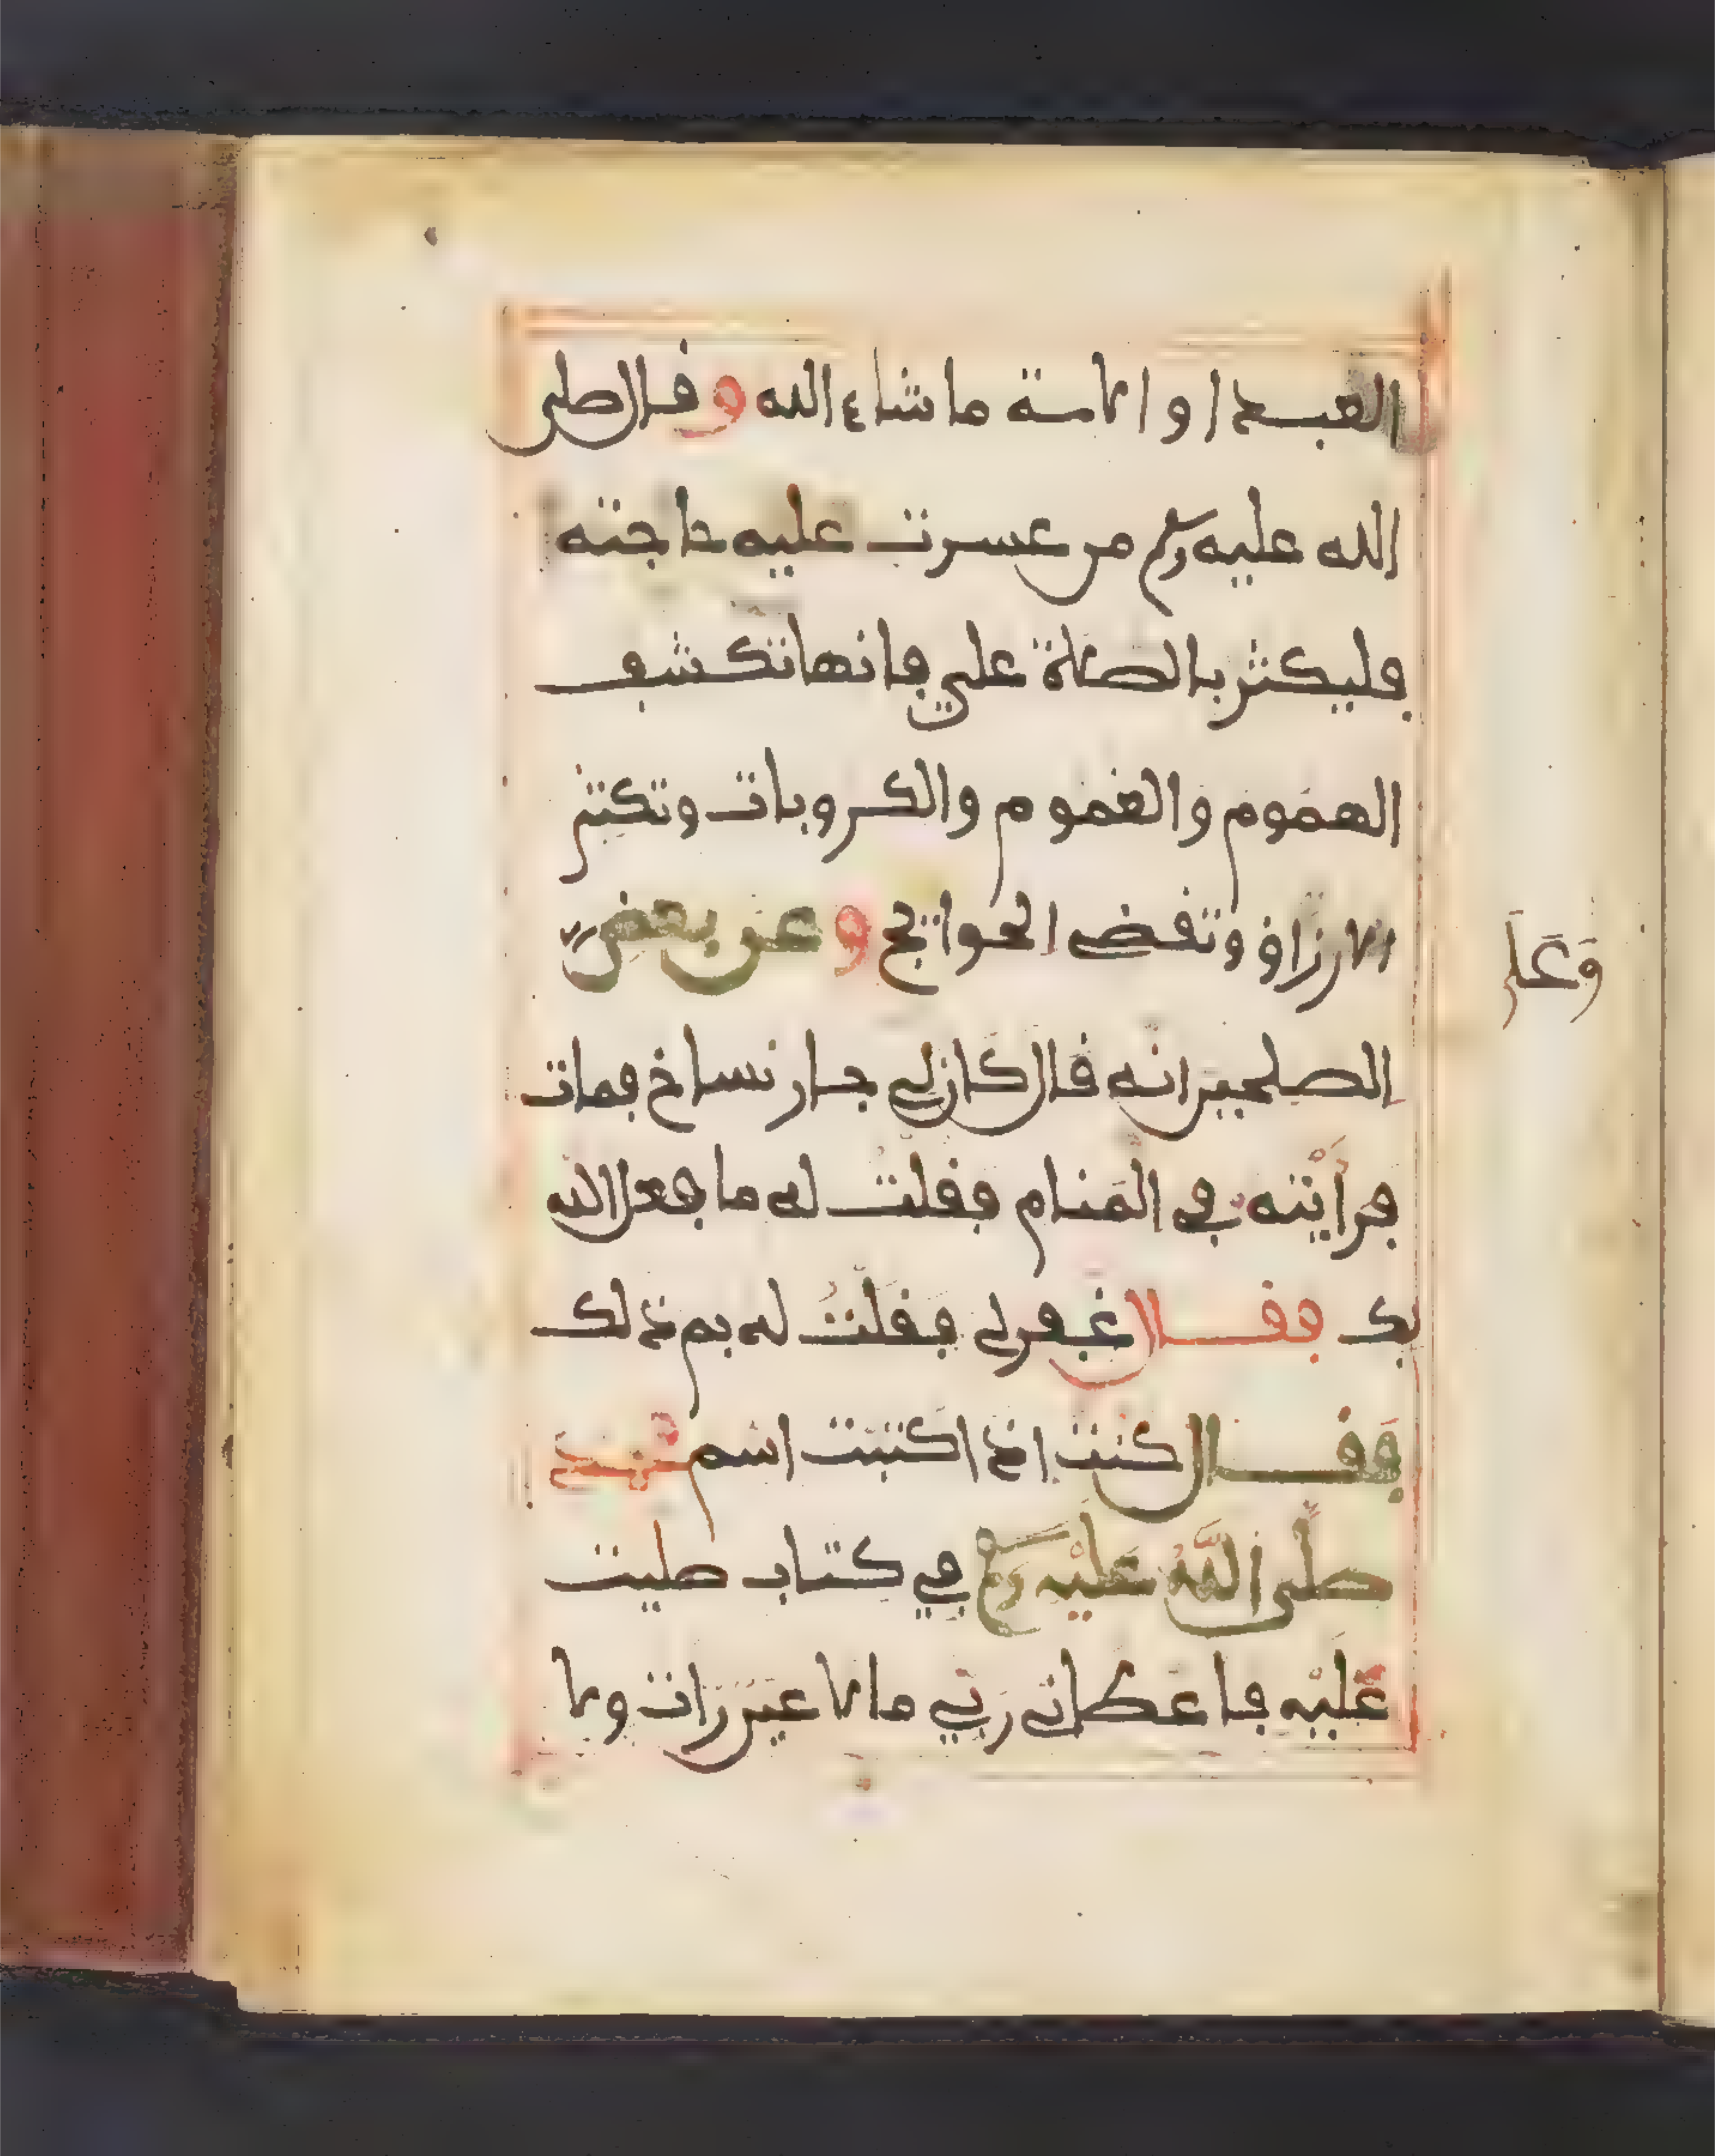 العبد او الامة ما شاء الله وقال صلى
الله عليه وسلم من عسرت عليه حاجته
فليكثر بالصلاة علي فانها تكشف
الهموم والغموم والكروبات وتكثر
الارزاق وتقض الحوايج وعن بعض
الصلحين انه قال كان لي جار نساخ فمات
فرأيته في المنام فقلت له ما فعل الله
بك فقال غفر لي فقلت له بم ذلك
فقال كنت اذا كتبت اسم محمد
صلى الله عليه وسلم في كتاب صليت
عليه فاعطاني ربي ما لا عين رات ولا